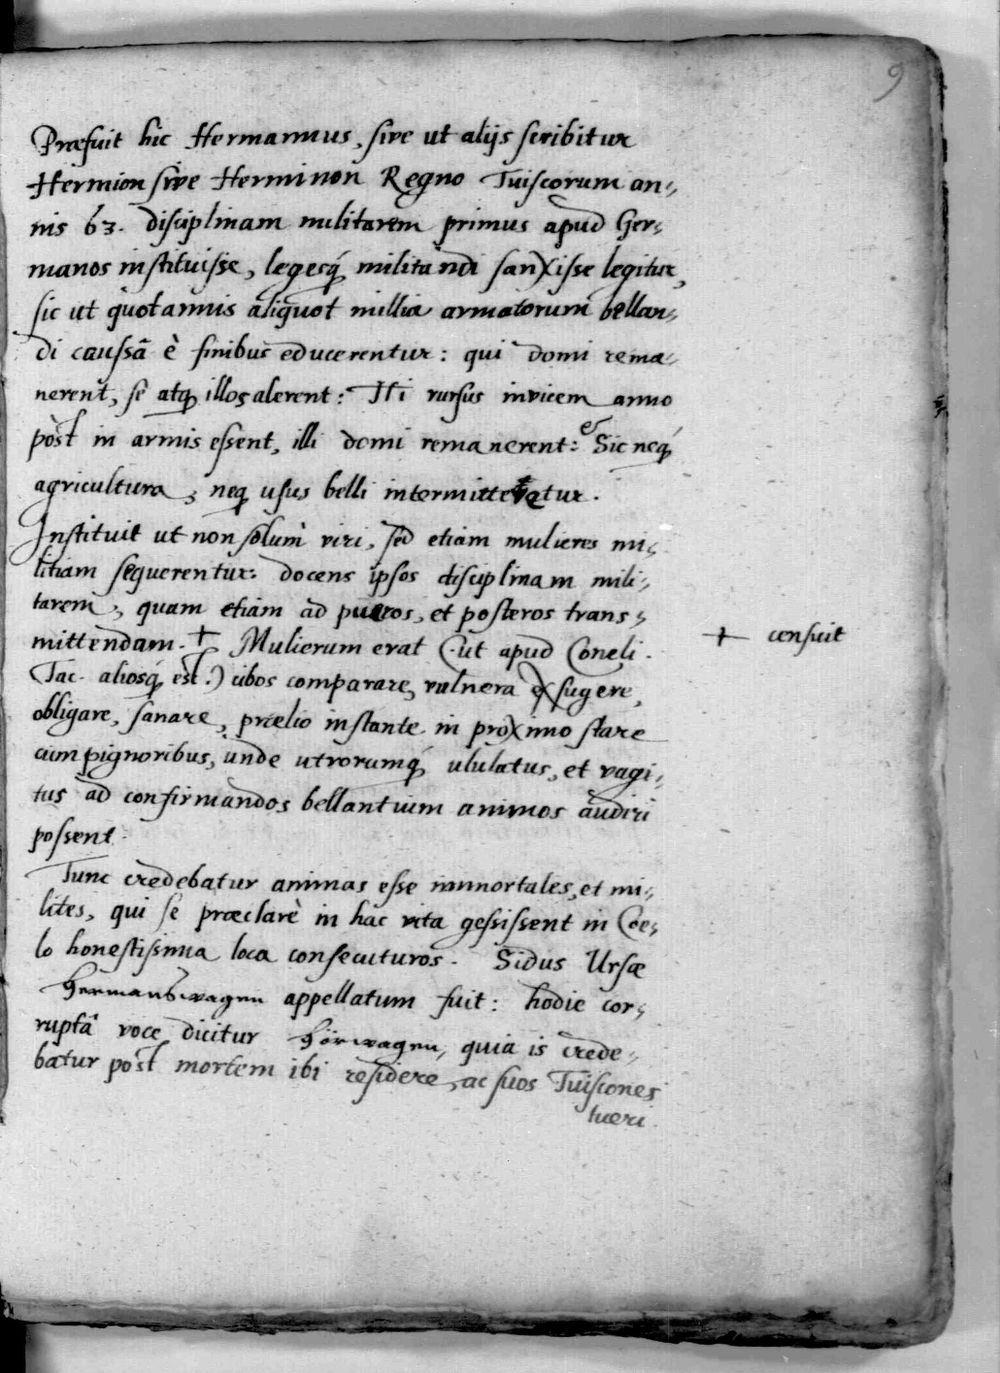 9
Præfuit hic Hermannus, sive ut alijs scribitur
Hermion sive Herminon Regno Tuiscorum an-
nis 63. disciplinam militarem primus apud Ger-
manos instituisse, legesq́ militandi sanxisse legitur,
sic ut quotannis aliquot millia armatorum bellan-
di caussâ è finibus educerentur: qui domi rema-
nerent, se atq illos alerent: Hi rursus invicem anno
pòst in armis essent, illi domi remanerent: et Sic neq́
agricultura, neq usus belli intermitteretur.
Instituit ut non solùm viri, sed etiam mulieres mi-
litiam sequerentur: docens ipsos disciplinam mili-
tarem, quam etiam ad pueros, et posteros trans-
mittendam. + Mulierum erat (ut apud Corneli.
+ censuit
Tac. aliosq́ est.) cibos comparare, vulnera exsugere,
obligare, sanare, prælio instante in proximo stare
cum pignoribus, unde utrorumq́ ululatus, et vagi-
tus ad confirmandos bellantium animos audiri
possent.
Tunc credebatur animas esse immortales, et mi-
lites, qui se præclarè in hac vita gessissent in Coe-
lo honestissima loca consecuturos. Sidus Ursæ
Hermanswagen appellatum fuit: hodie cor-
ruptâ voce dicitur Hörwagen, quia is crede-
batur pòst mortem ibi residere, ac suos Tuiscones
tueri.